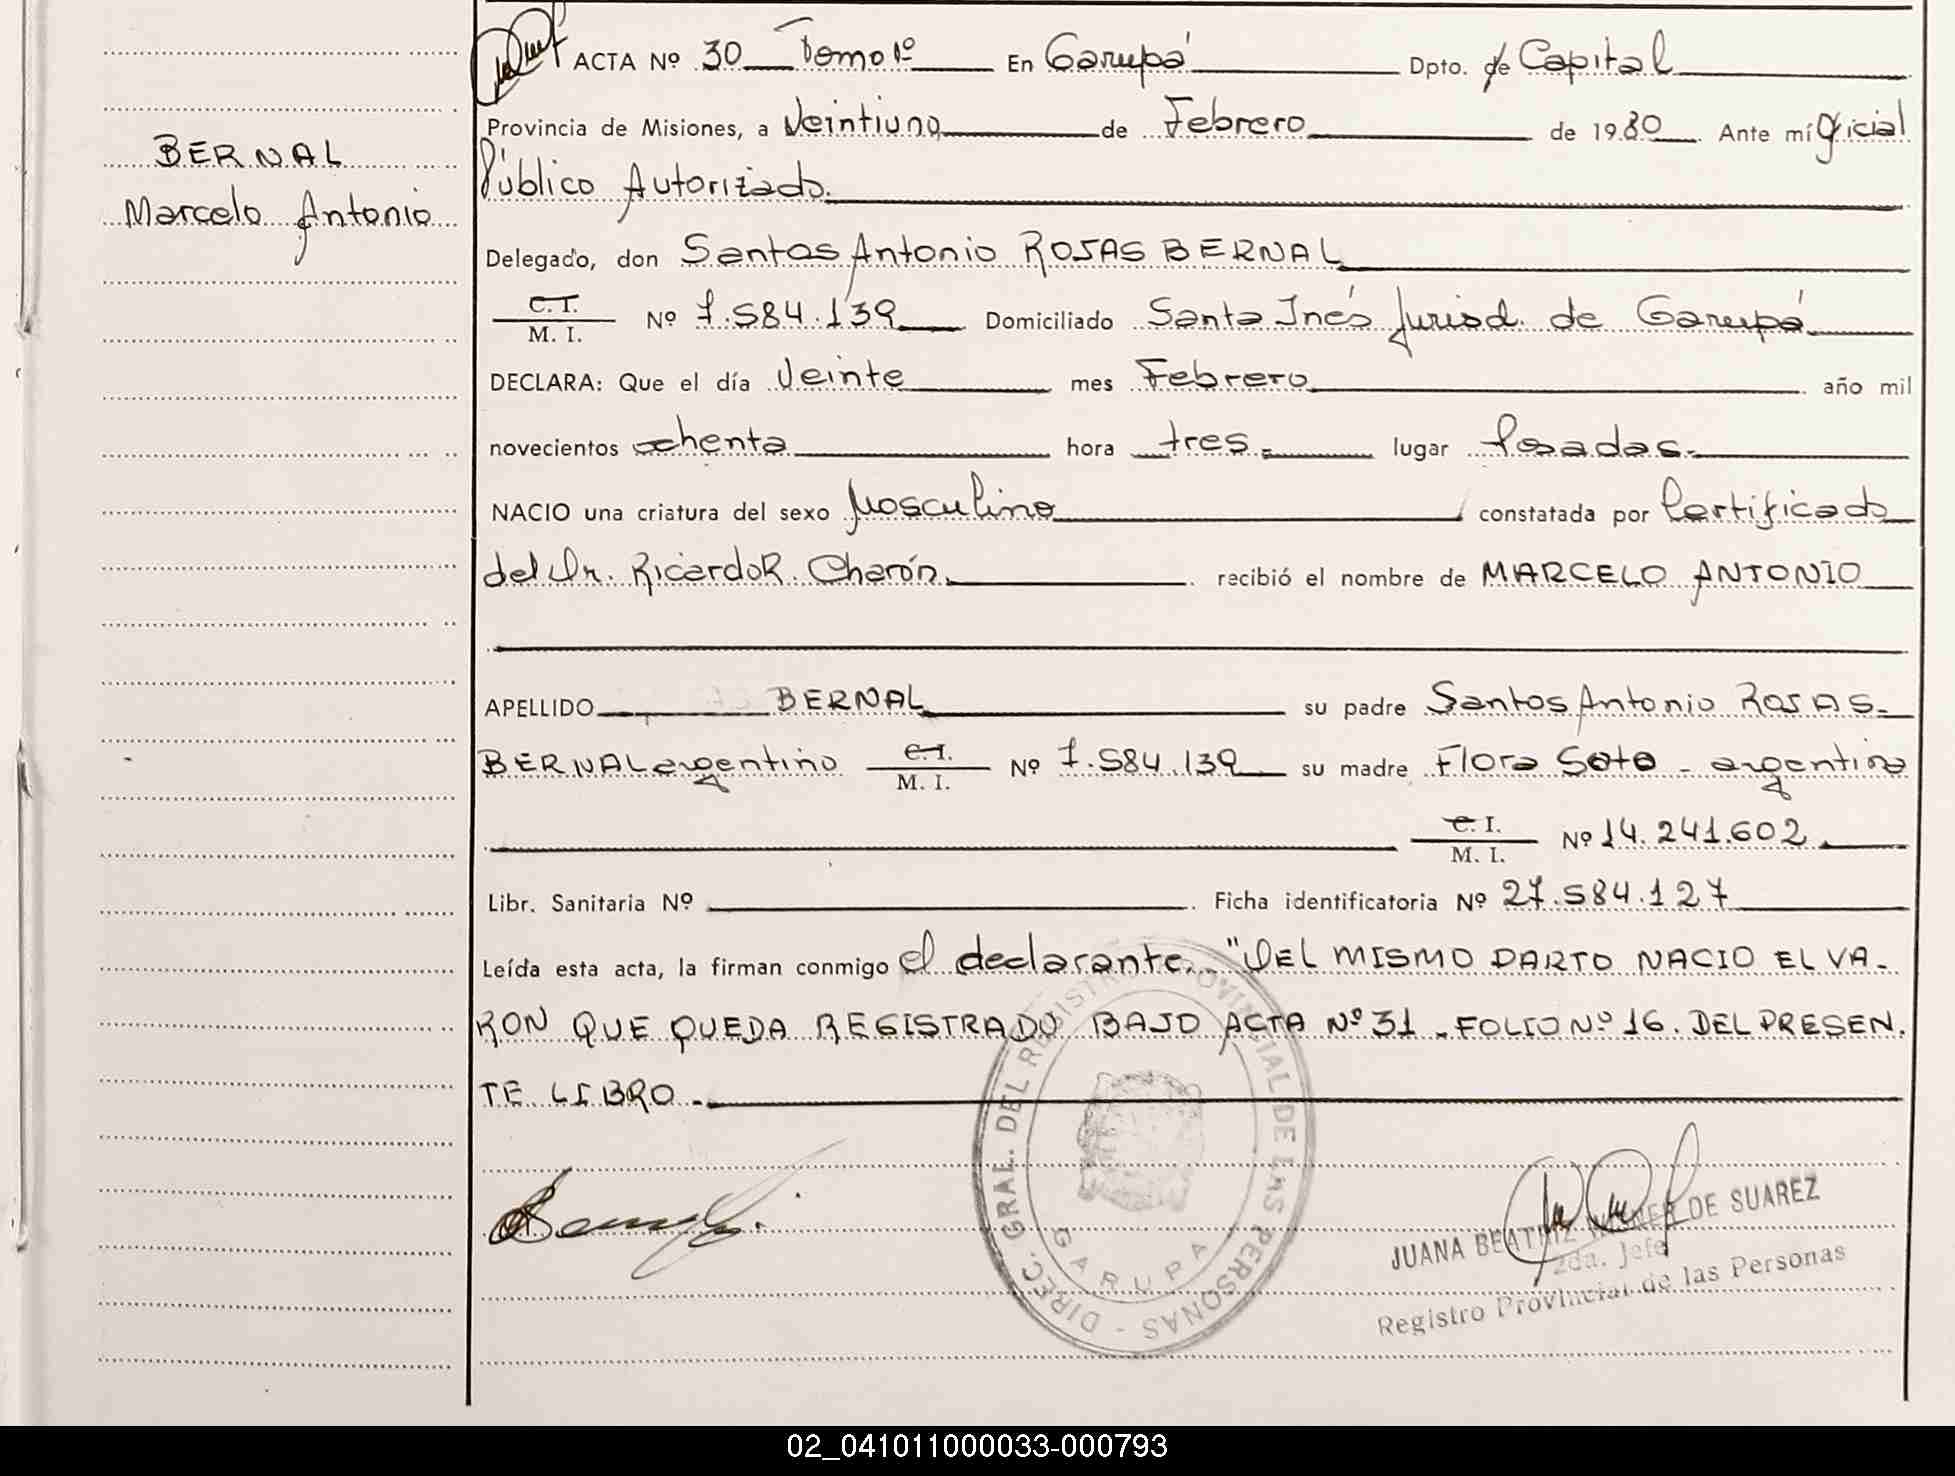 ACTA Nº 30 Tomo 1º En Garupá Dpto. de Capital
Provincia de Misiones, a Veintiuno de Febrero de 1980. Ante mí Oficial
Público Autorizado.
BERNAL
Marcelo Antonio
Delegado, don Santos Antonio ROJAS BERNAL
C. I.
M. I. Nº 7.584.139 Domiciliado Santa Inés Jurisd. de Garupá
DECLARA: Que el día Veinte mes Febrero año mil
novecientos ochenta hora tres. lugar Posadas.
NACIO una criatura del sexo Masculino constatada por Certificado
del Dr. Ricardo R. Charón. recibió el nombre de MARCELO ANTONIO
APELLIDO BERNAL su padre Santos Antonio ROJAS
BERNAL argentino C. I.
M. I. Nº 7.584.139 su madre Flora Soto - argentina
C. I.
M. I. Nº 14.241.602
Libr. Sanitaria Nº Ficha identificatoria Nº 27.584.127
Leída esta acta, la firman conmigo el declarante. "DEL MISMO PARTO NACIO EL VA-
RON QUE QUEDA REGISTRADO BAJO ACTA Nº 31 - FOLIO Nº 16. DEL PRESEN.
TE LIBRO.-
DIREC. GRAL. DEL REGISTRO PROVINCIAL DE LAS PERSONAS -
GARUPA
JUANA BEATRIZ DE SUAREZ
2da. Jefe
Registro Provincial de las Personas
02_041011000033-000793